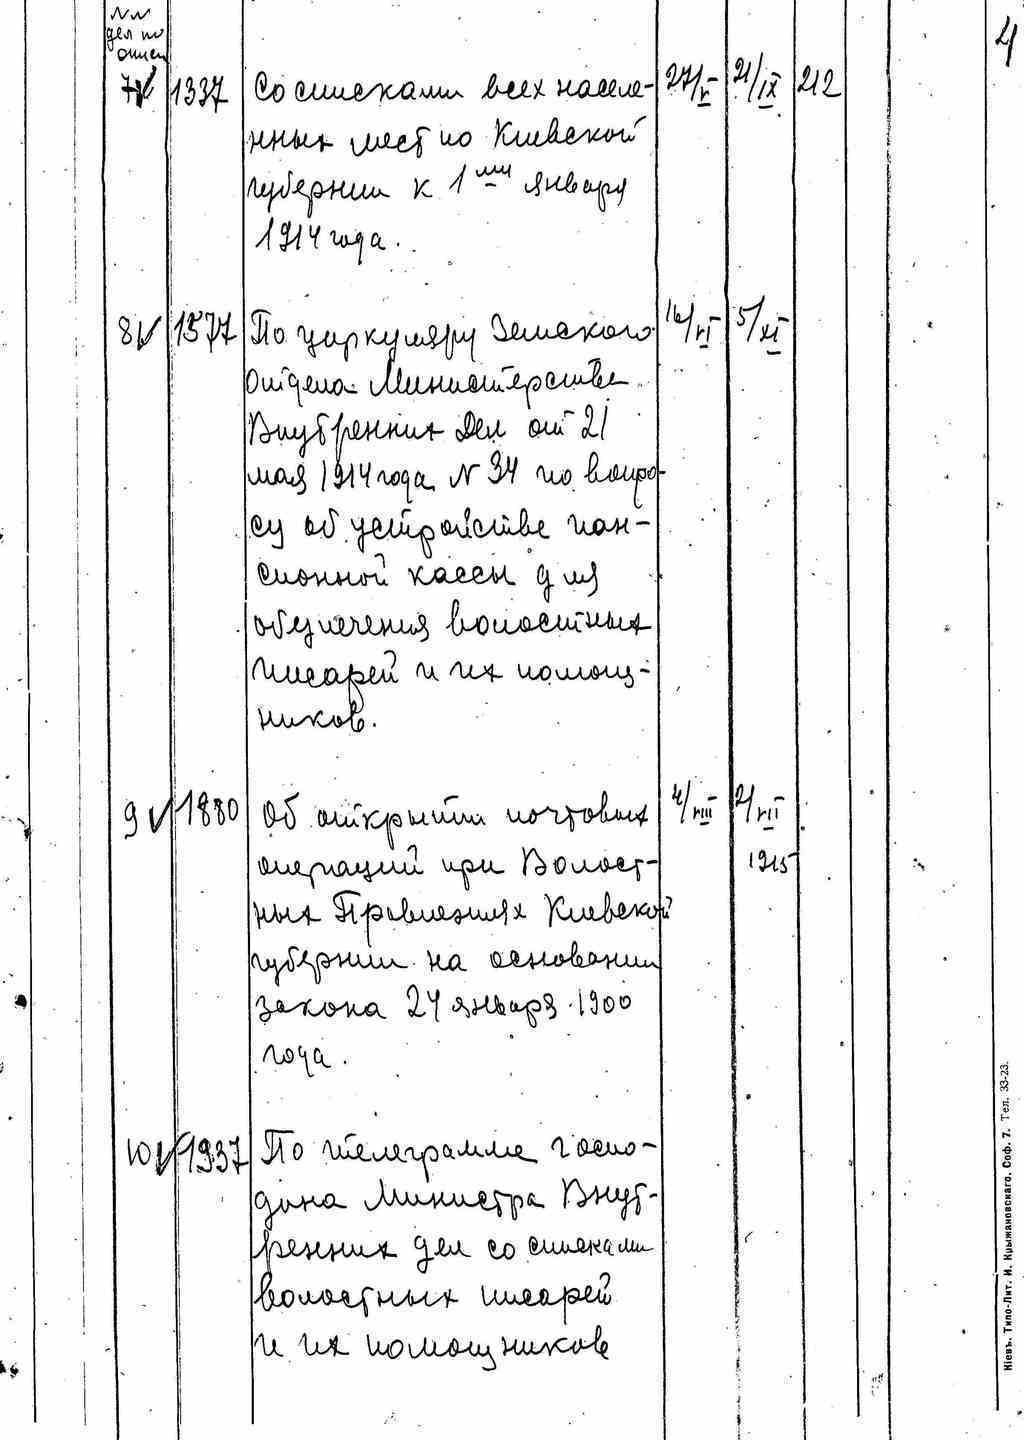 4
NN
дел по
описи
7 1337 Со списками всех населе- 27/V 21/IX 212
нных мест по Киевской
губернии к 1ми января
1914 года.
8 1577 По циркуляру Земского 16/VI 5/XI
Отдела Министерства
Внутренних Дел от 21
мая 1914 года N 34 по вопро-
су об устройстве пан-
сионной кассы для
обеспечения волостных
писарей и их помощ-
ников.
9 1880 Об открытии почтовых 4/VIII 2/VII
операций при Волост- 1915
ных Правлениях Киевской
губернии на основании
закона 24 января 1900
года.
10 1937 По телеграмме госпо-
дина Министра Внут-
ренних дел со списками
волостных писарей
и их помощников
Кіевъ. Типо-Лит. И. Крыжановскаго. Соф. 7. Тел. 33-23.